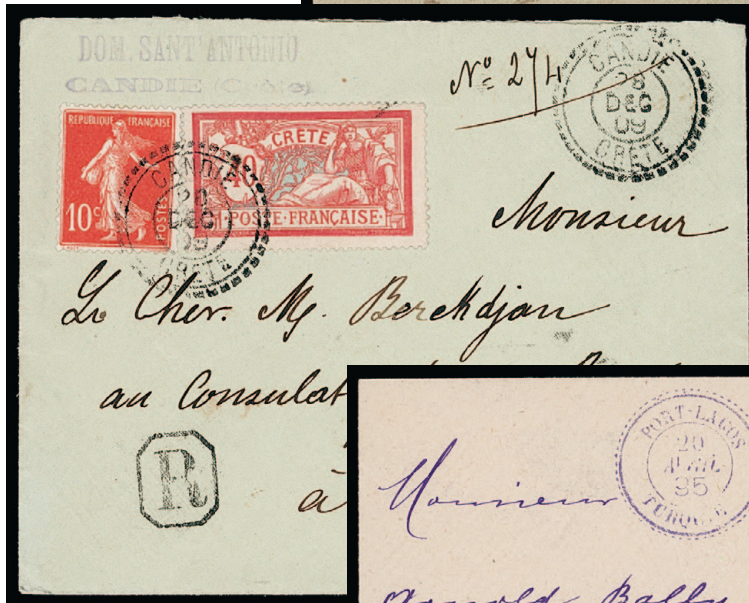 DOM. SANT'ANTONIO.
CANDIE (Crète)
Nº 274
CANDIE
28
DEC
09
CRETE
REPUBLIQUE FRANÇAISE
10c
POSTES
CRÈTE
40
POSTE FRANÇAISE
CANDIE
DEC
09
CRETE
Monsieur
Le Chev. M. Berekdjan
au Consulat
R
à
PORT-LAGOS
20
AVRIL
95
TURQUIE
Monsieur
Arnold Bally